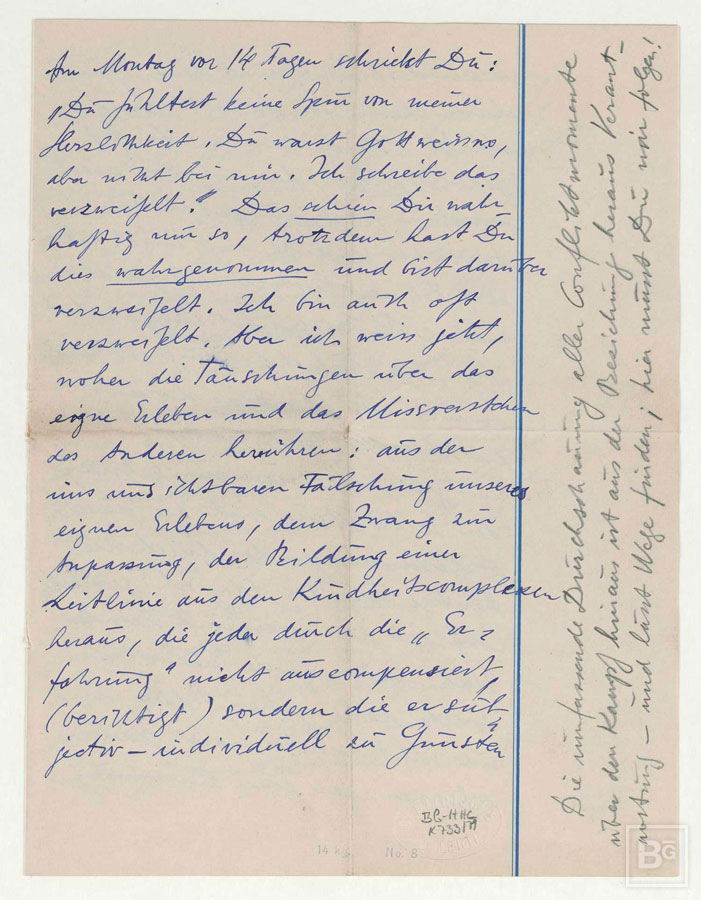 Am Montag vor 14 Tagen schriebst Du:
„Du fühltest keine Spur von meiner
Herzlichkeit. Du warst Gottweisswo,
aber nicht bei mir. Ich schreibe das
verzweifelt." Das schien Dir wahr
haftig nur so, trotzdem hast Du
dies wahrgenommen und bist darüber
verzweifelt. Ich bin auch oft
verzweifelt. Aber ich weiss jetzt,
woher die Täuschungen über das
eigne Erleben und das Missverstehen
des Anderen herrühren: aus der
uns unsichtbaren Fälschung unseres
eignen Erlebens, dem Zwang zur
Anpassung, der Bildung einer
Leitlinie aus den Kindheitscomplexen
heraus, die jeder durch die „Er-
fahrung" nicht auscompensiert,
(berichtigt) sondern die er sub
jectiv – individuell zu Gunsten
Die umfassende Durchschauung aller Conflictmomente
über den Kampf hinaus ist aus der Beziehung heraus Verant-
wortung – und lässt Wege finden; hier musst Du mir folgen!
BG-HHC
K733/79
14 No. 8
BG